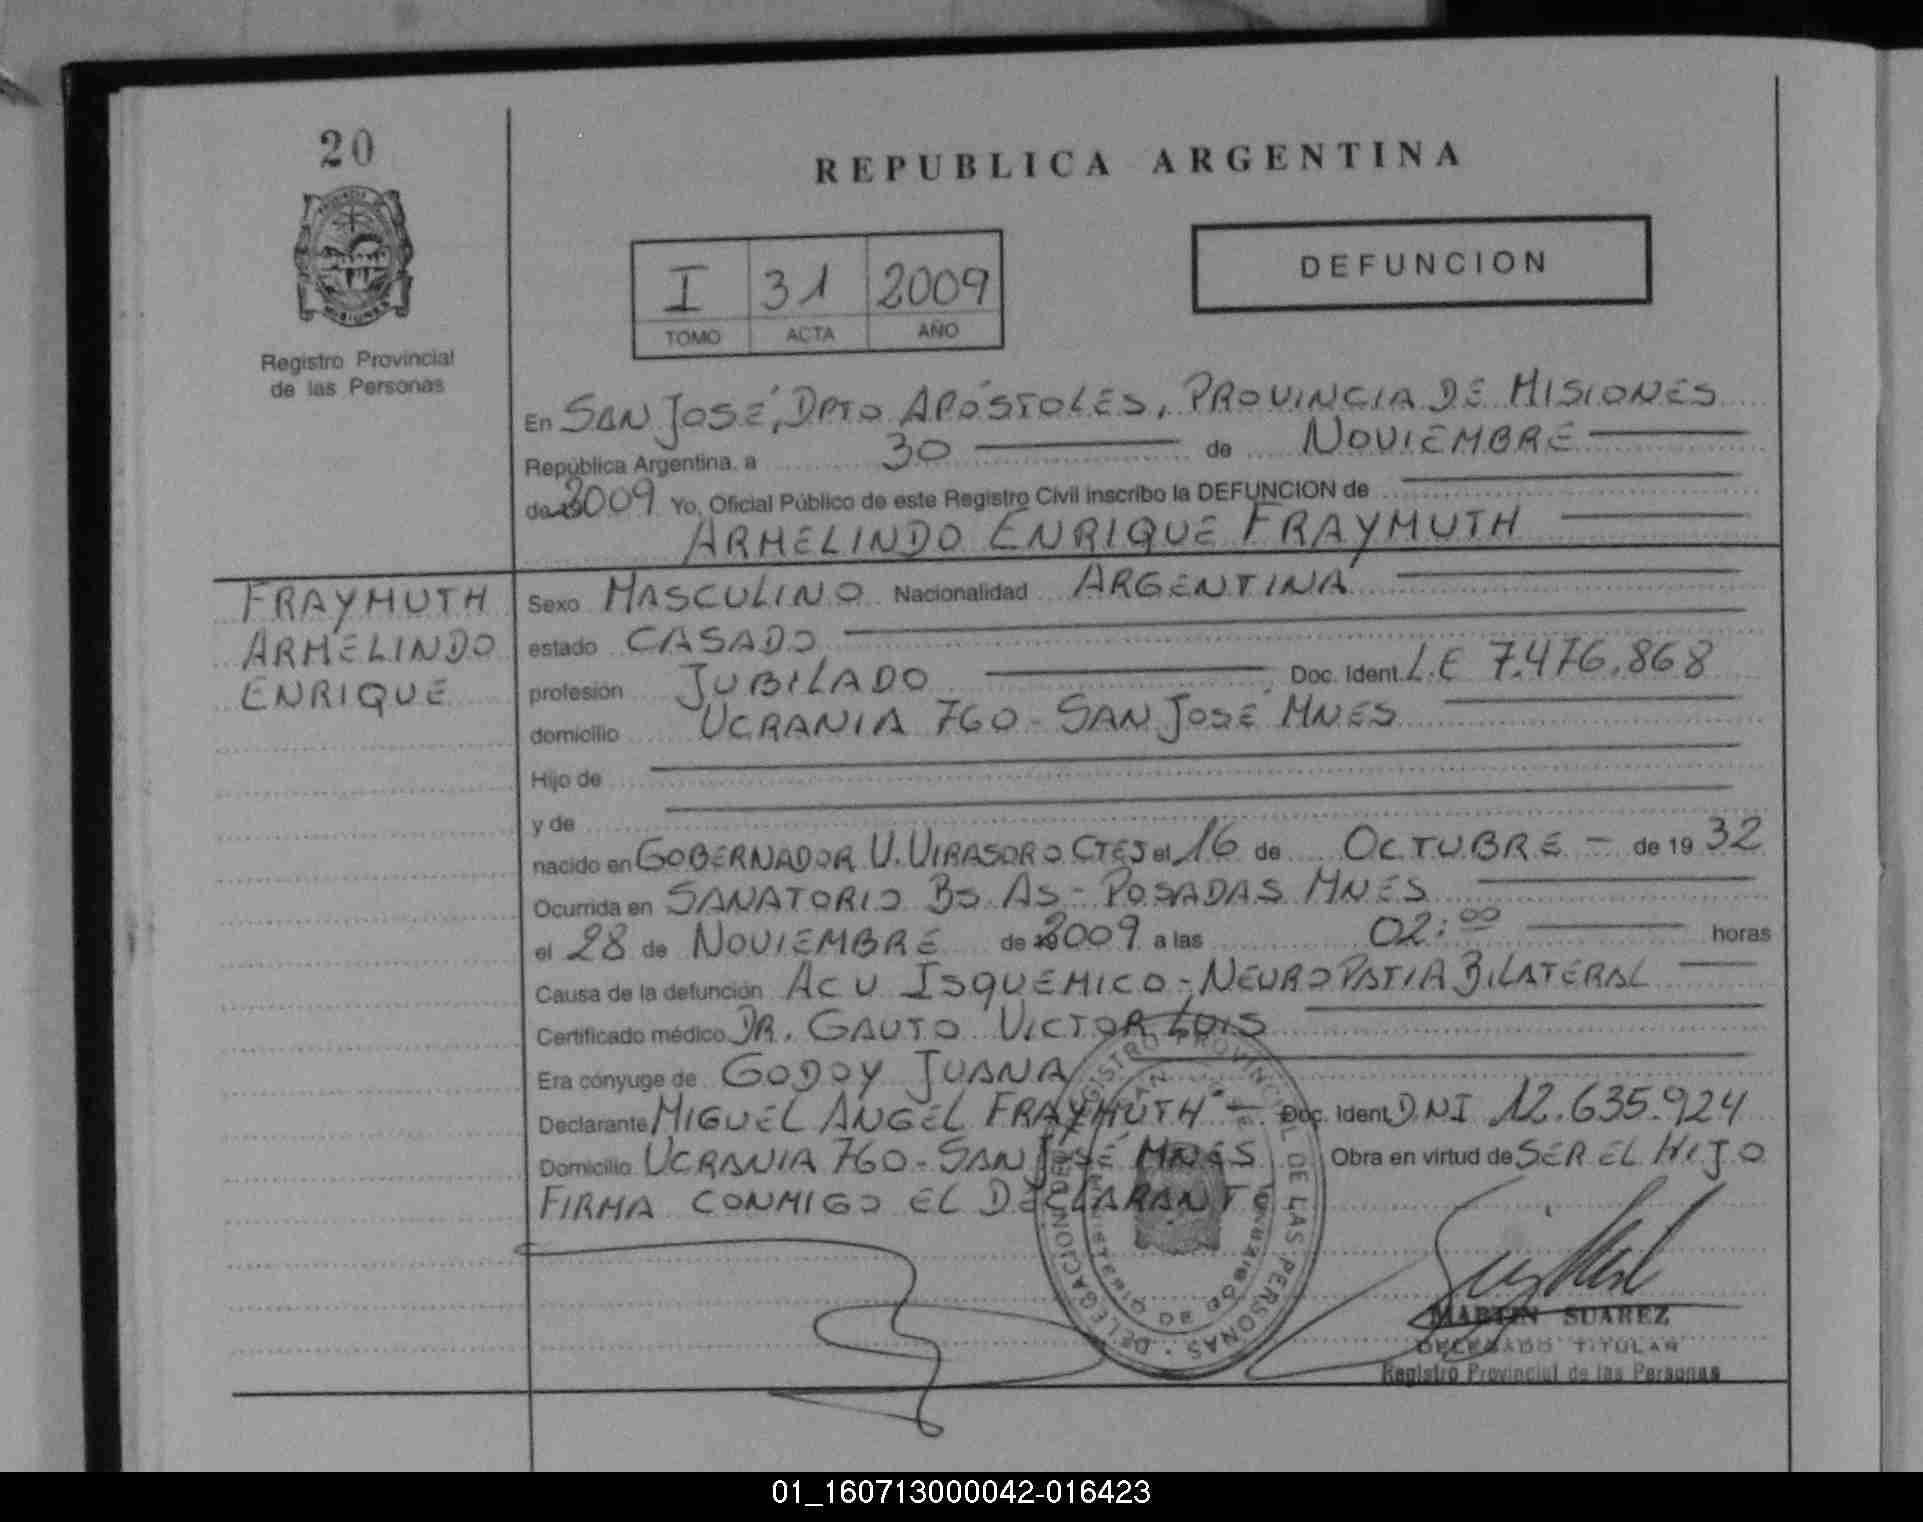 20
REPUBLICA ARGENTINA
PROVINCIA
MISIONES
Registro Provincial
de las Personas
I 31 2009
TOMO ACTA AÑO
DEFUNCION
En SAN JOSÉ, DPTO APÓSTOLES, PROVINCIA DE MISIONES
República Argentina, a 30 de NOVIEMBRE
de 2009 Yo, Oficial Público de este Registro Civil inscribo la DEFUNCION de
ARMELINDO ENRIQUE FRAYMUTH
FRAYMUTH
ARMELINDO
ENRIQUE
Sexo MASCULINO Nacionalidad ARGENTINA
estado CASADO
profesión JUBILADO Doc. Ident. L.E 7.476.868
domicilio UCRANIA 760 - SAN JOSÉ MNES
Hijo de
y de
nacido en GOBERNADOR V. VIRASORO CTES el 16 de OCTUBRE - de 19 32
Ocurrida en SANATORIO BS. AS - POSADAS MNES
el 28 de NOVIEMBRE de 2009 a las 02:00 horas
Causa de la defunción ACU ISQUEMICO - NEUROPATIA BILATERAL
Certificado médico DR. GAUTO VICTOR LUIS
Era cónyuge de GODOY JUANA
Declarante MIGUEL ANGEL FRAYMUTH - Doc. Ident. DNI 12.635.924
Domicilio UCRANIA 760 - SAN JOSÉ MNES Obra en virtud de SER EL HIJO
FIRMA CONMIGO EL DECLARANTE
REGISTRO PROVINCIAL DE LAS PERSONAS · DELEGACION
MARTIN SUAREZ
DELEGADO TITULAR
Registro Provincial de las Personas
01_160713000042-016423